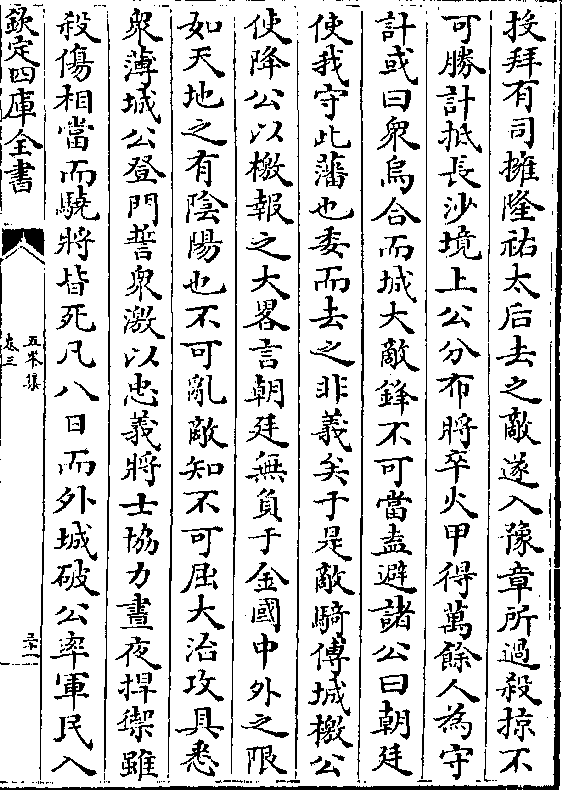 投拜有司擁隆祐太后去之敵遂入豫章所過殺掠不
可勝計抵長沙境上公分布將卒火甲得萬餘人為守
計或曰衆烏合而城大敵鋒不可當盍避諸公曰朝廷
使我守此藩也委而去之非義矣于是敵騎傅城檄公
使降公以檄報之大畧言朝廷無負于金國中外之限
如天地之有陰陽也不可亂敵知不可屈大治攻具悉
衆薄城公登門誓衆激以忠義將士協力晝夜捍禦雖
殺傷相當而驍將皆死凡八日而外城破公率軍民入
欽定四庫全書
五峯集
卷三